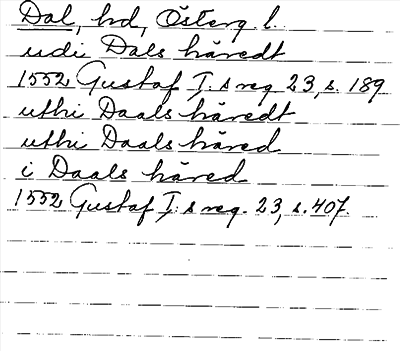 Dal, hd, Österg l.
udi Dals häredt
1552 Gustaf I:s reg 23, s. 189
uthi Daals häredt
uthi Daals häred
i Daals häred
1552 Gustaf I:s reg. 23, s. 407.